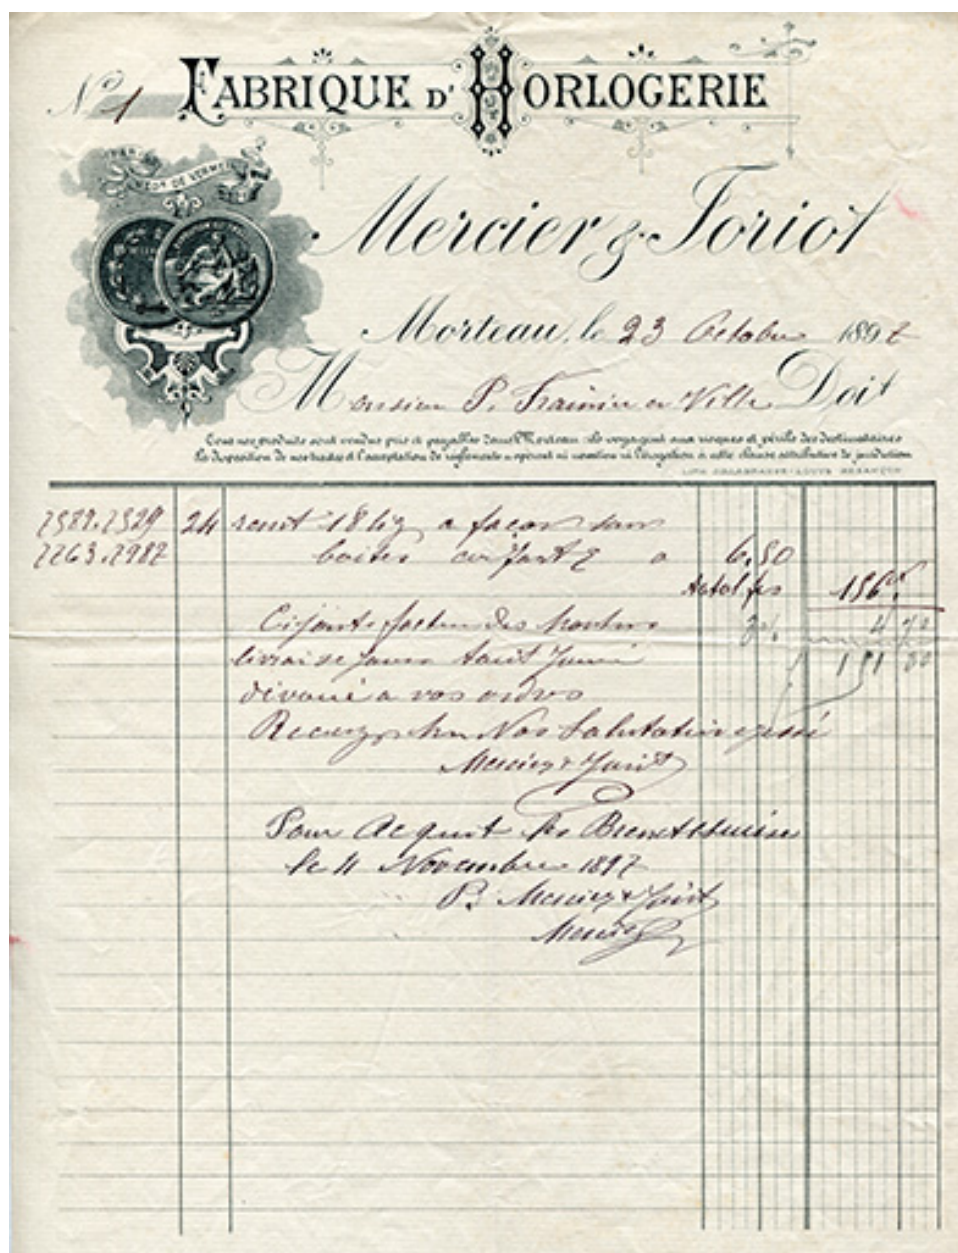 No 1
FABRIQUE D'HORLOGERIE
MÉD. DE VERMEIL
Mercier & Joriot
Morteau, le 23 Octobre 1897
Monsieur P. Frainier en Ville Doit
Tous nos produits sont vendus pris et payables dans Morteau : ils voyagent aux risques et périls des destinataires
La disposition de nos traites et l'acceptation de règlements n'opèrent ni novation ni dérogation à cette clause attributive de juridiction
LITH. BESANÇON
24 remt 18 lig a façon sans
boites a 6,50
total frs 156
Ci joint facture des
3% 4
livraise
151
dévoué a vos ordres
Recevez Nos Salutations
Mercier & Joriot
Pour Acquit les Brenets Suisse
le 11 Novembre 1897
P. Mercier & Joriot
Mercier